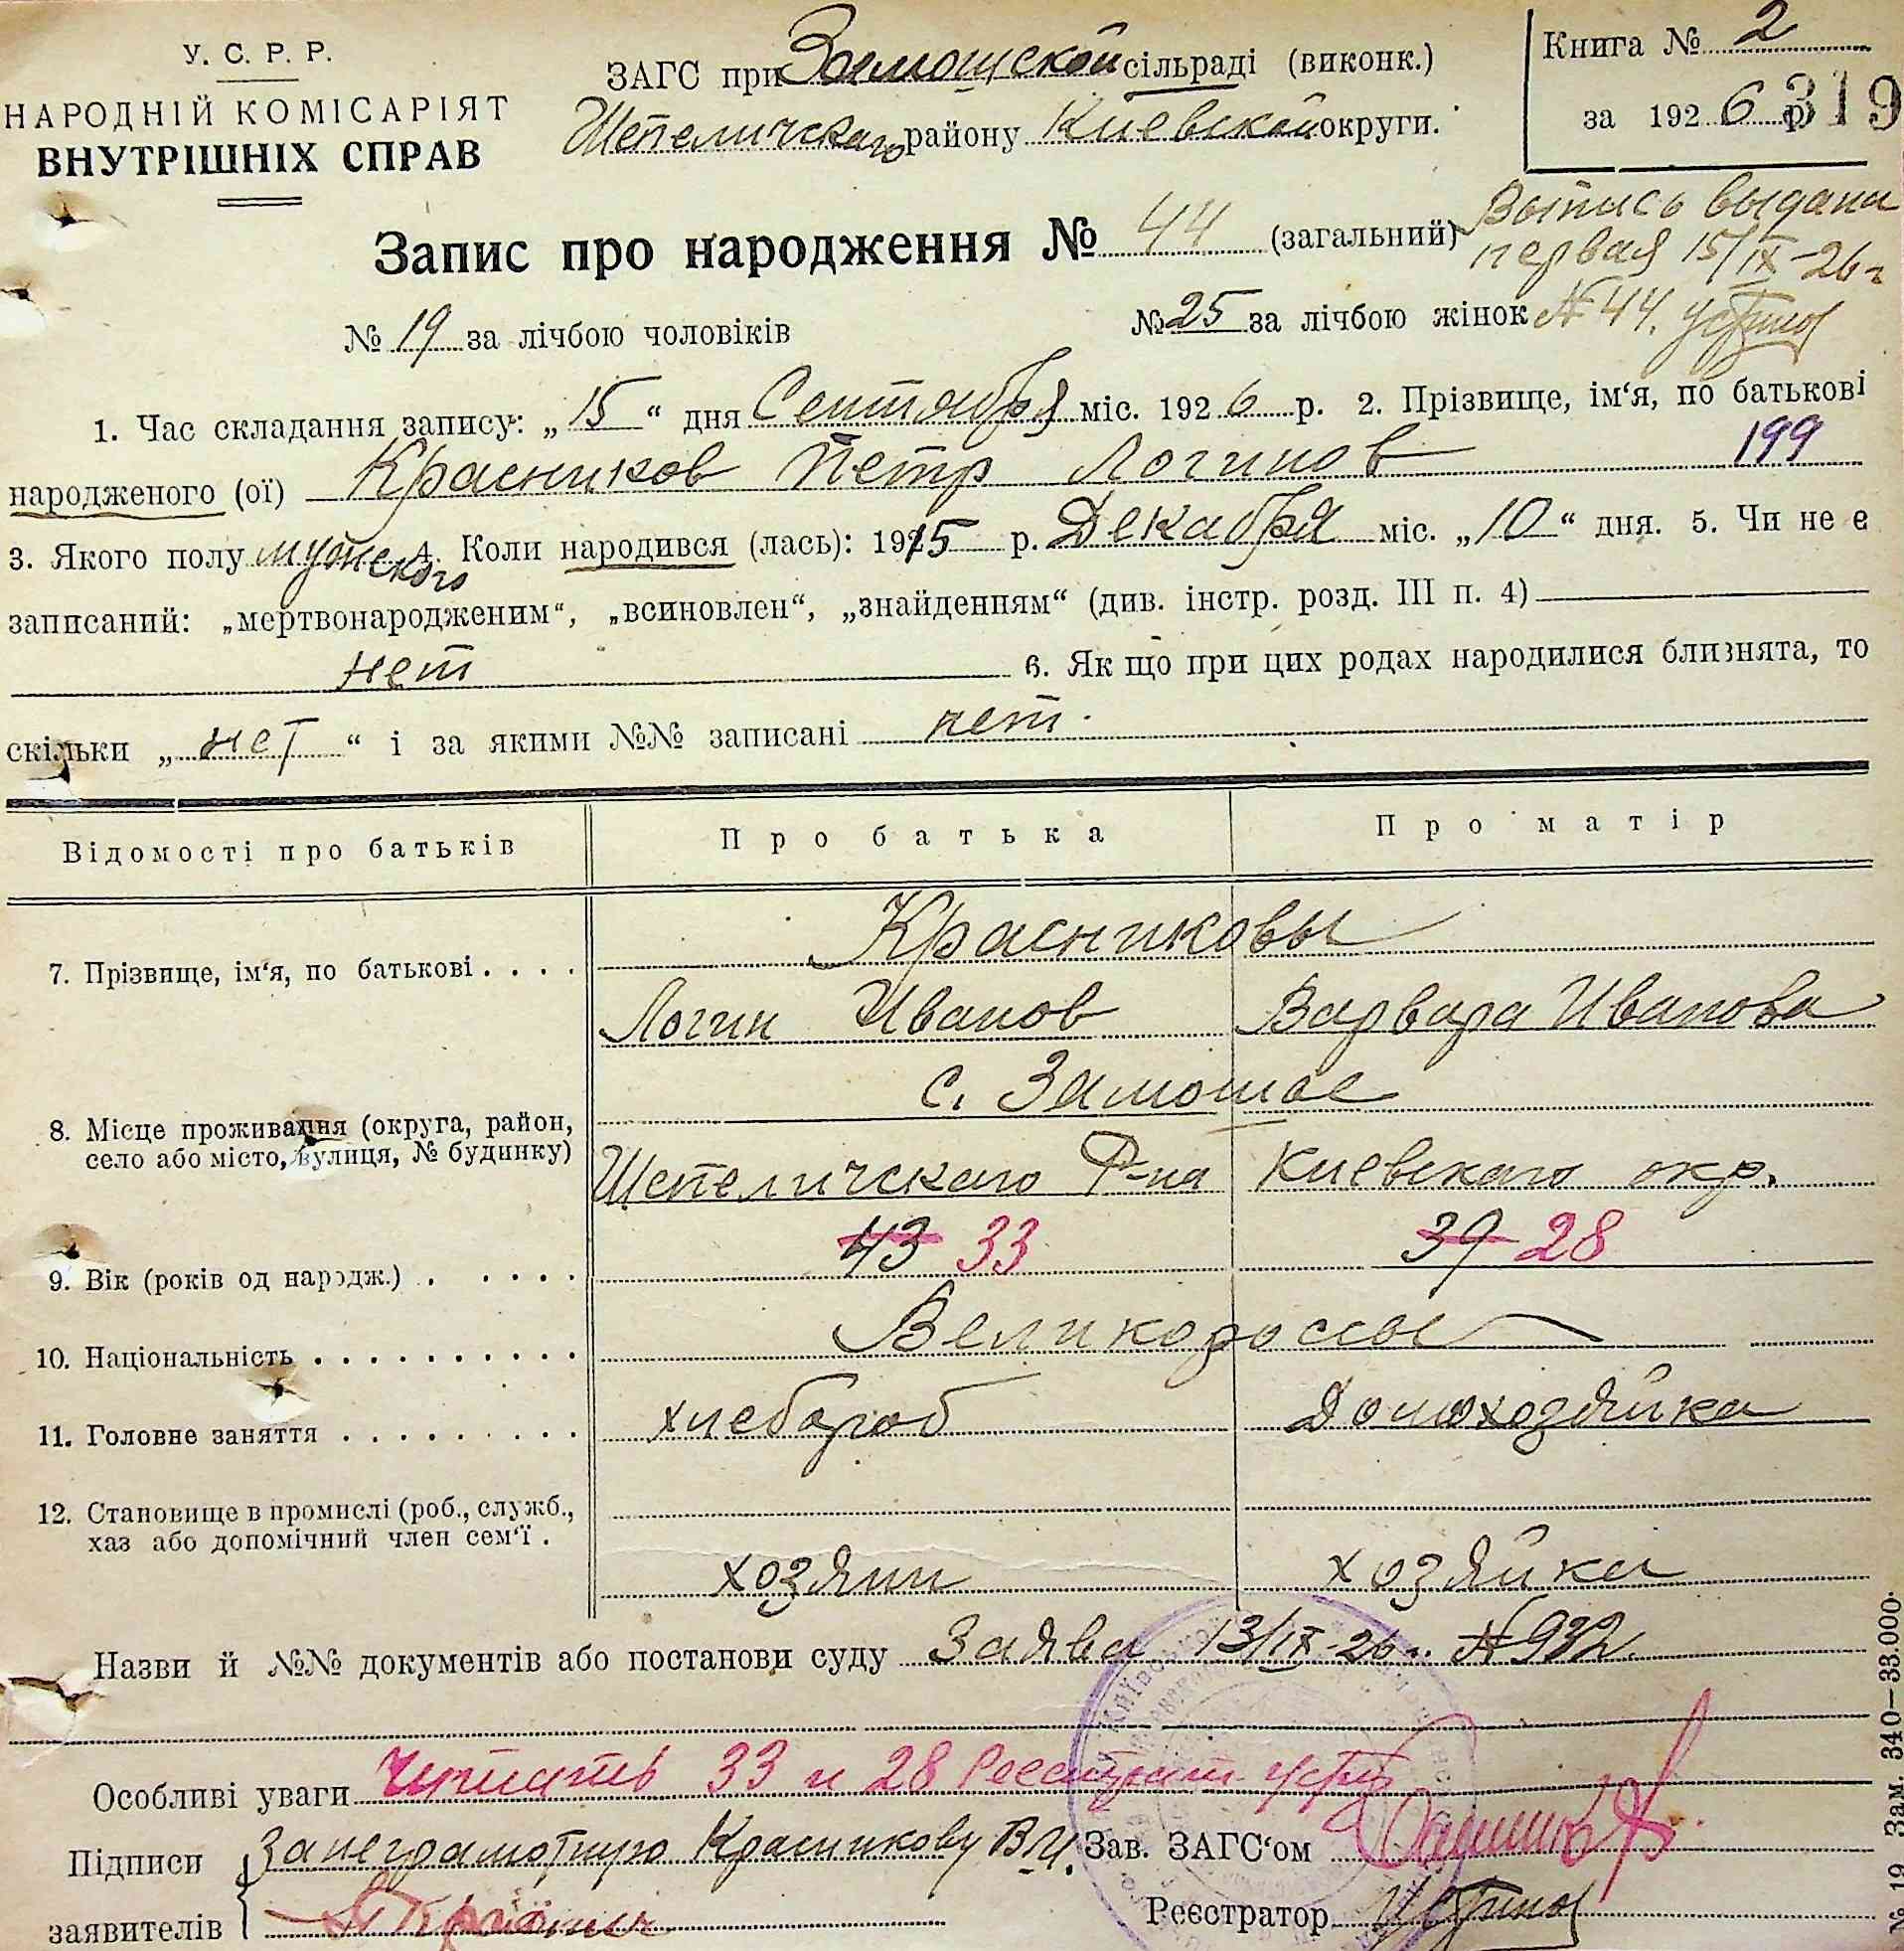 У. С. Р. Р.
НАРОДНІЙ КОМІСАРІЯТ
ВНУТРІШНІХ СПРАВ
ЗАГС при Замошской сільраді (виконк.)
Шепеличскаго району Киевской округи.
Книга № 2
за 1926 р.
319
Запис про народження № 44 (загальний)
Выпись выдана
первая 15/IX-26 г
№ 44.
№ 19 за лічбою чоловіків
№ 25 за лічбою жінок
1. Час складання запису: „15“ дня Сентября міс. 1926 р. 2. Прізвище, ім‘я, по батькові
199
народженого (ої) Красников Петр Логинов
3. Якого полу мужского 4. Коли народився (лась): 1915 р. Декабря міс. „10“ дня. 5. Чи не є
записаний: „мертвонародженим“, „всиновлен“, „знайденням“ (див. інстр. розд. III п. 4)
нет 6. Як що при цих родах народилися близнята, то
скільки „нет“ і за якими №№ записані нет.
Відомості про батьків Про батька Про матір
Красниковы
7. Прізвище, ім‘я, по батькові . . . .
Логин Иванов Варвара Иванова
с. Замошье
8. Місце проживання (округа, район,
село або місто, вулиця, № будинку)
Шепеличскаго Р-на Киевскаго окр.
9. Вік (років од народж.) . . . . . 43 33 39 28
10. Національність . . . . . . . . . . Великороссы
11. Головне заняття . . . . . . . . . хлебороб Домохозяйка
12. Становище в промислі (роб., служб.,
хаз або допомічний член сем‘ї .
хозяин хозяйка
Назви й №№ документів або постанови суду Заява 13/IX-26 г. № 932.
Особливі уваги Читать 33 и 28
Підписи
заявителів
За неграмотную Красникову В.И.
Зав. ЗАГС‘ом
Реєстратор
№ 19 Зам. 340—33.000.